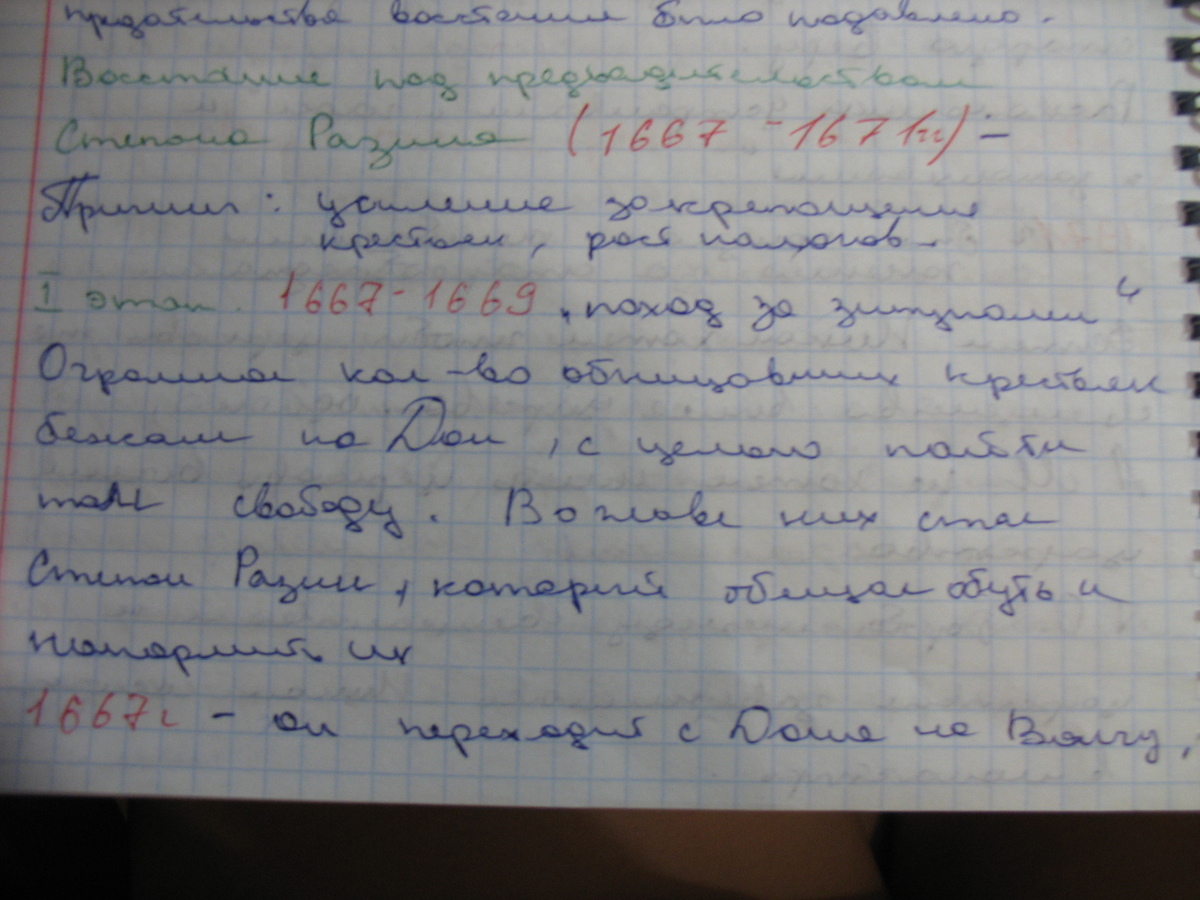 предательства восстание было подавлено.
Восстание под предводительством
Степана Разина (1667 - 1671гг) –
Причин: усиление закрепощения
крестьян, рост налогов.
I этап. 1667-1669 „поход за зипунами“
Огромное кол-во обнищавших крестьян
бежали на Дон, с целью найти
там свободу. Во главе них стал
Степан Разин, который обещал обуть и
накормить их
1667г – он переходит с Дона на Волгу,